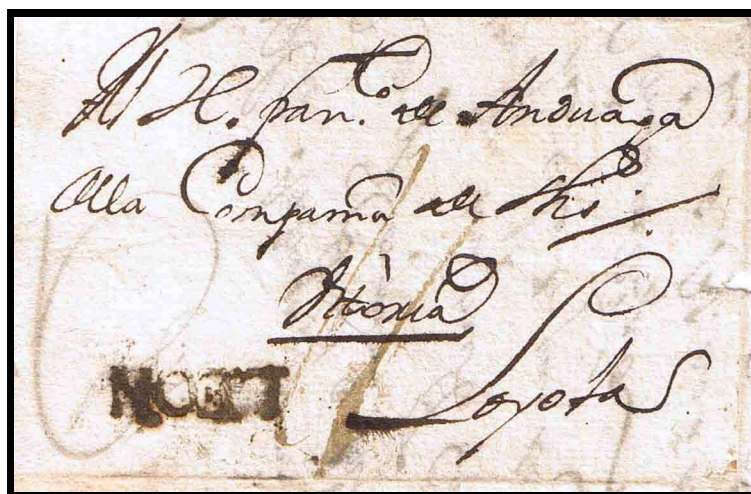 Al H. fran.co de Anduaga
de la Compamã de Jhs
Vitoria
Loyola